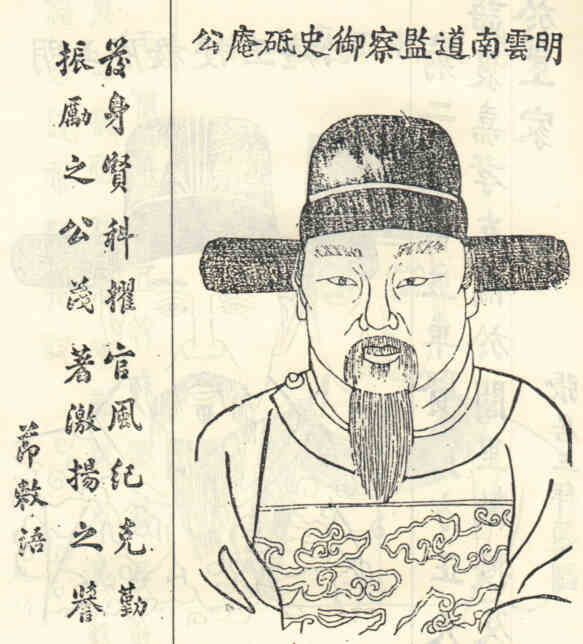 明雲南道監察御史砥庵公
發身賢科擢官風紀克勤
振勵之公茂著激揚之譽
節敕語